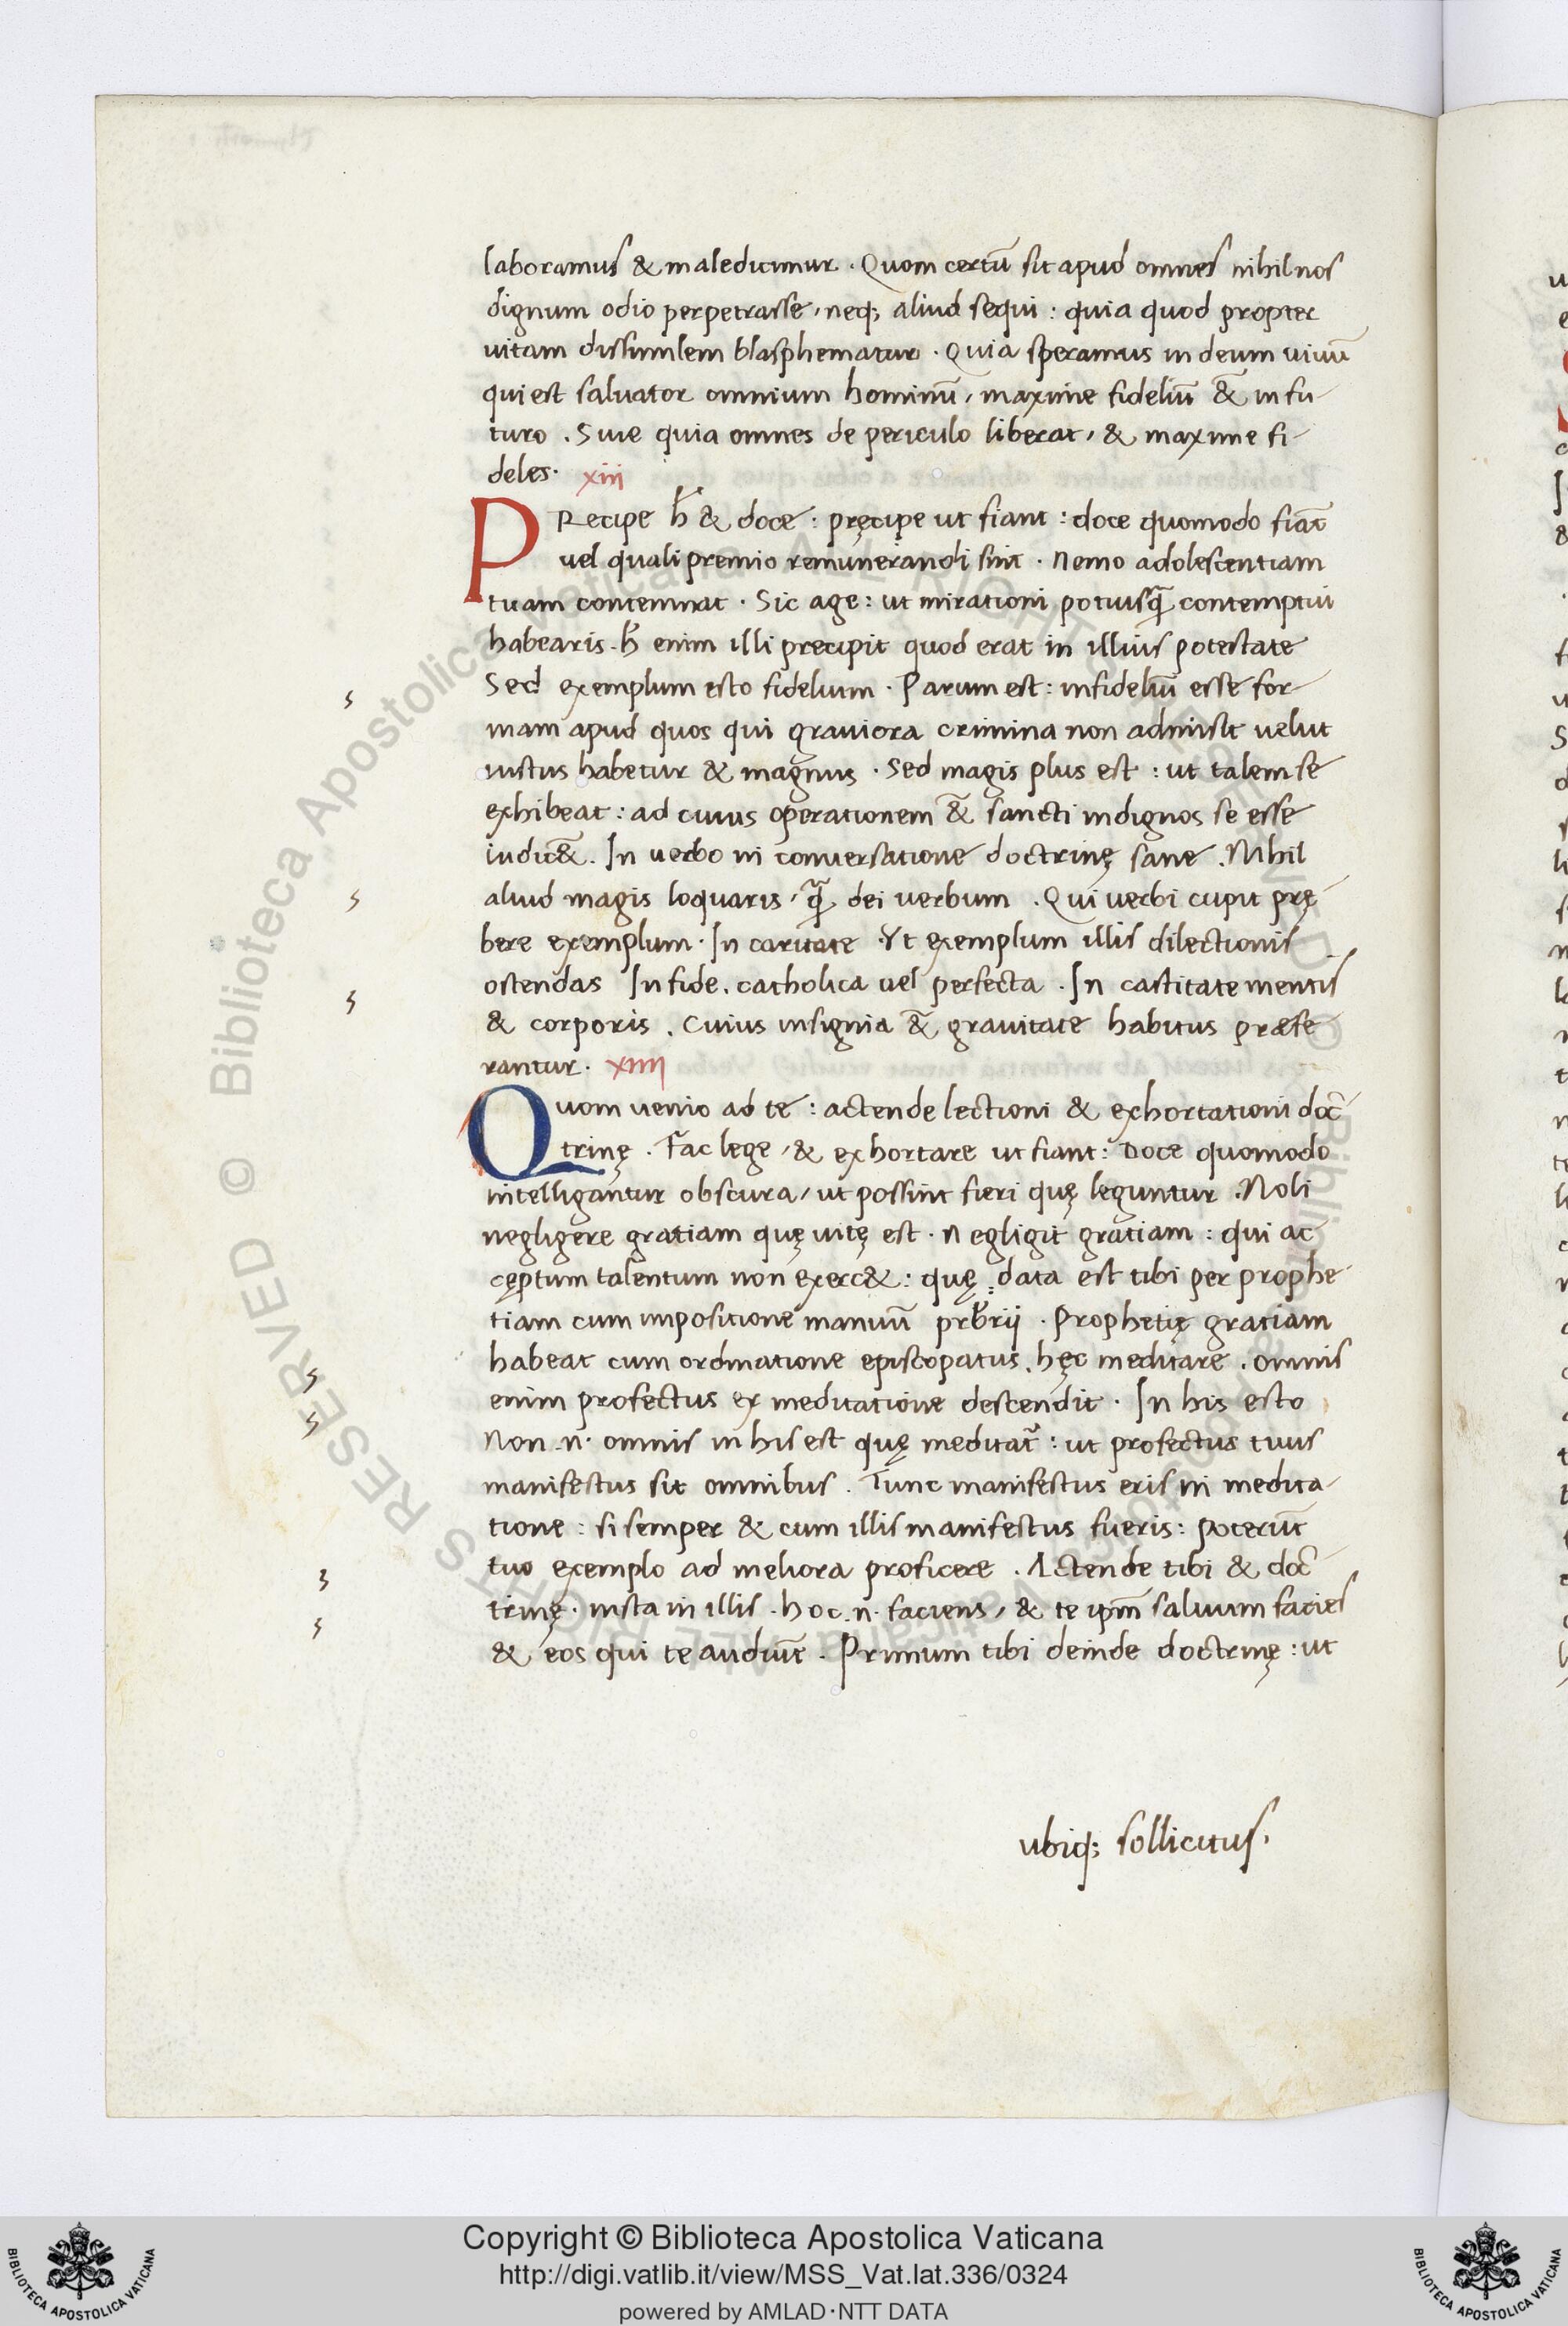 laboramus & maledicimur. Quom certū sit apud omnes nihil nos
dignum odio perpetrasse, neq; aliud sequi: quia quod propter
uitam dissimilem blasphematur. Quia speramus in deum uiuū
qui est saluator omnium hominū, maxime fideliū & in fu-
turo. Siue quia omnes de periculo liberat, & maxime fi-
deles. xiii
PRecipe h̄ & doce: pręcipe ut fiant: doce quomodo fiāt
uel quali premio remunerandi sint. Nemo adolescentiam
tuam contemnat. Sic age: ut mirationi potiusq̄ contemptui
habearis. h̄ enim illi precipit quod erat in illius potestate
Sed exemplum esto fidelium. Parum est: infideliū esse for-
mam apud quos qui grauiora crimina non admisit uelut
iustus habetur & magnus. Sed magis plus est: ut talem se
exhibeat: ad cuius operationem & sancti indignos se esse
iudic&. In uerbo in conuersatione doctrinę sane. Nihil
aliud magis loquaris, q̄ dei uerbum. Qui uerbi cupit prę-
bere exemplum. In caritate. Vt exemplum illis dilectionis
ostendas In fide. catholica uel perfecta. In castitate mentis
& corporis. Cuius insignia & grauitate habitus præfe-
rantur. xiiii
Quom uenio ad te: actende lectioni & exhortationi doc-
trinę. Fac lege, & exhortare ut fiant: Doce quomodo
intelligantur obscura, ut possint fieri quę leguntur. Noli
negligere gratiam quę uitę est. Negligit gratiam: qui ac
cęptum talentum non exerc&: quę data est tibi per prophe-
tiam cum impositione manuū prb̄rii. Prophetię gratiam
habeat cum ordinatione episcopatus. hęc meditare. omnis
enim profectus ex meditatione descendit. In his esto
Non .n. omnis in his est quę meditat̄: ut profectus tuus
manifestus sit omnibus. Tunc manifestus eris in medita-
tione: si semper & cum illis manifestus fueris: poterūt
tuo exemplo ad meliora proficere. Actende tibi & doc-
trinę. insta in illis. hoc .n. faciens, & te ipm̄ saluum facies
& eos qui te audiūt. Primum tibi deinde doctrinę: ut
ubiq; sollicitus.
© Biblioteca Apostolica Vaticana ALL RIGHTS RESERVED
Copyright © Biblioteca Apostolica Vaticana
http://digi.vatlib.it/view/MSS_Vat.lat.336/0324
powered by AMLAD·NTT DATA
BIBLIOTECA APOSTOLICA VATICANA
BIBLIOTECA APOSTOLICA VATICANA